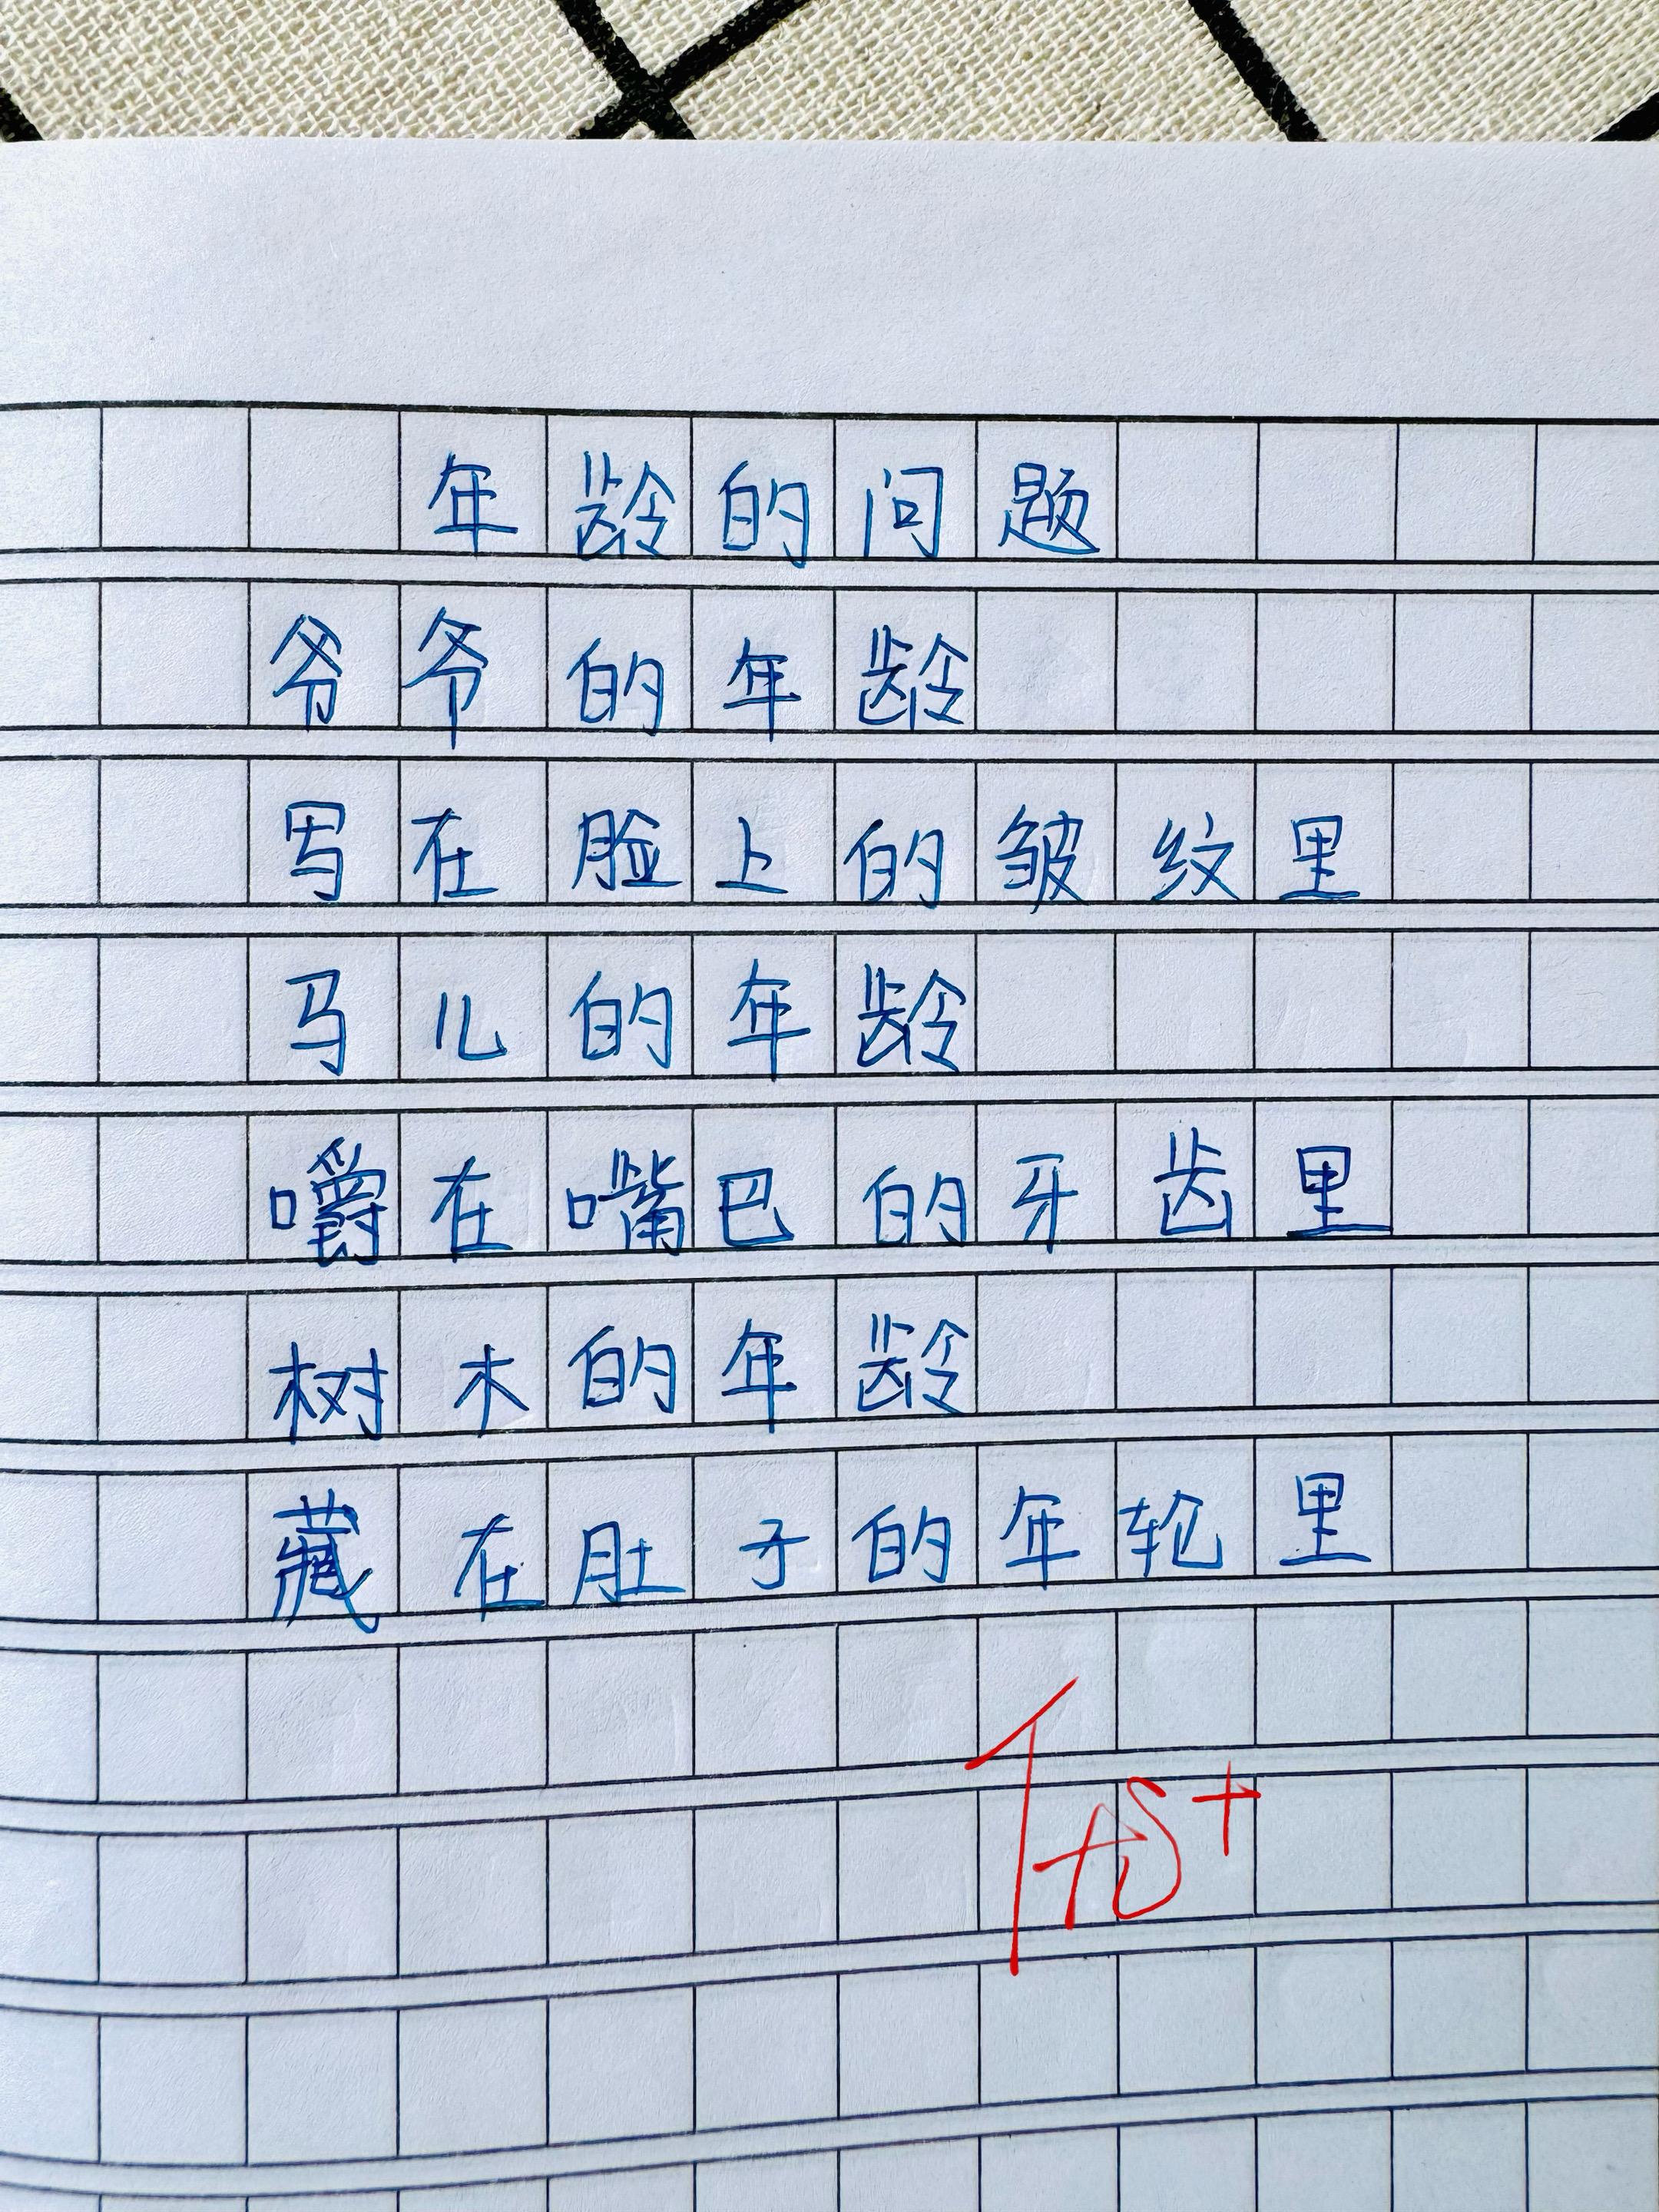 年龄的问题
爷爷的年龄
写在脸上的皱纹里
马儿的年龄
嚼在嘴巴的牙齿里
树木的年龄
藏在肚子的年轮里